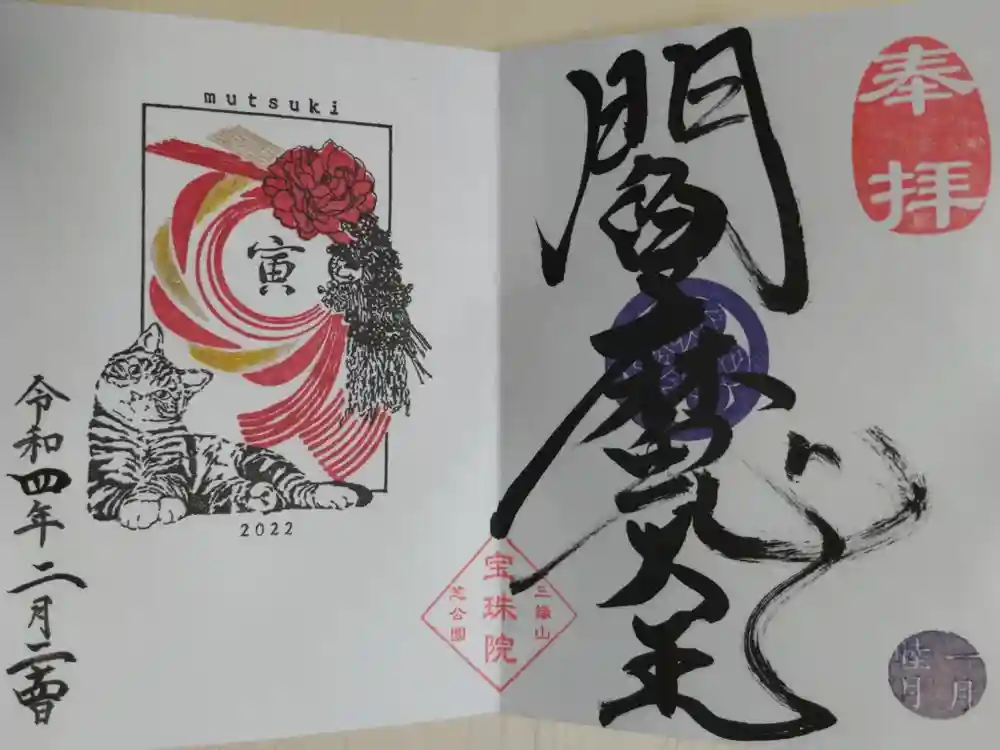 奉拝
閻魔大王
一月
睦月
三縁山
宝珠院
芝公園
mutsuki
寅
2022
令和四年二月